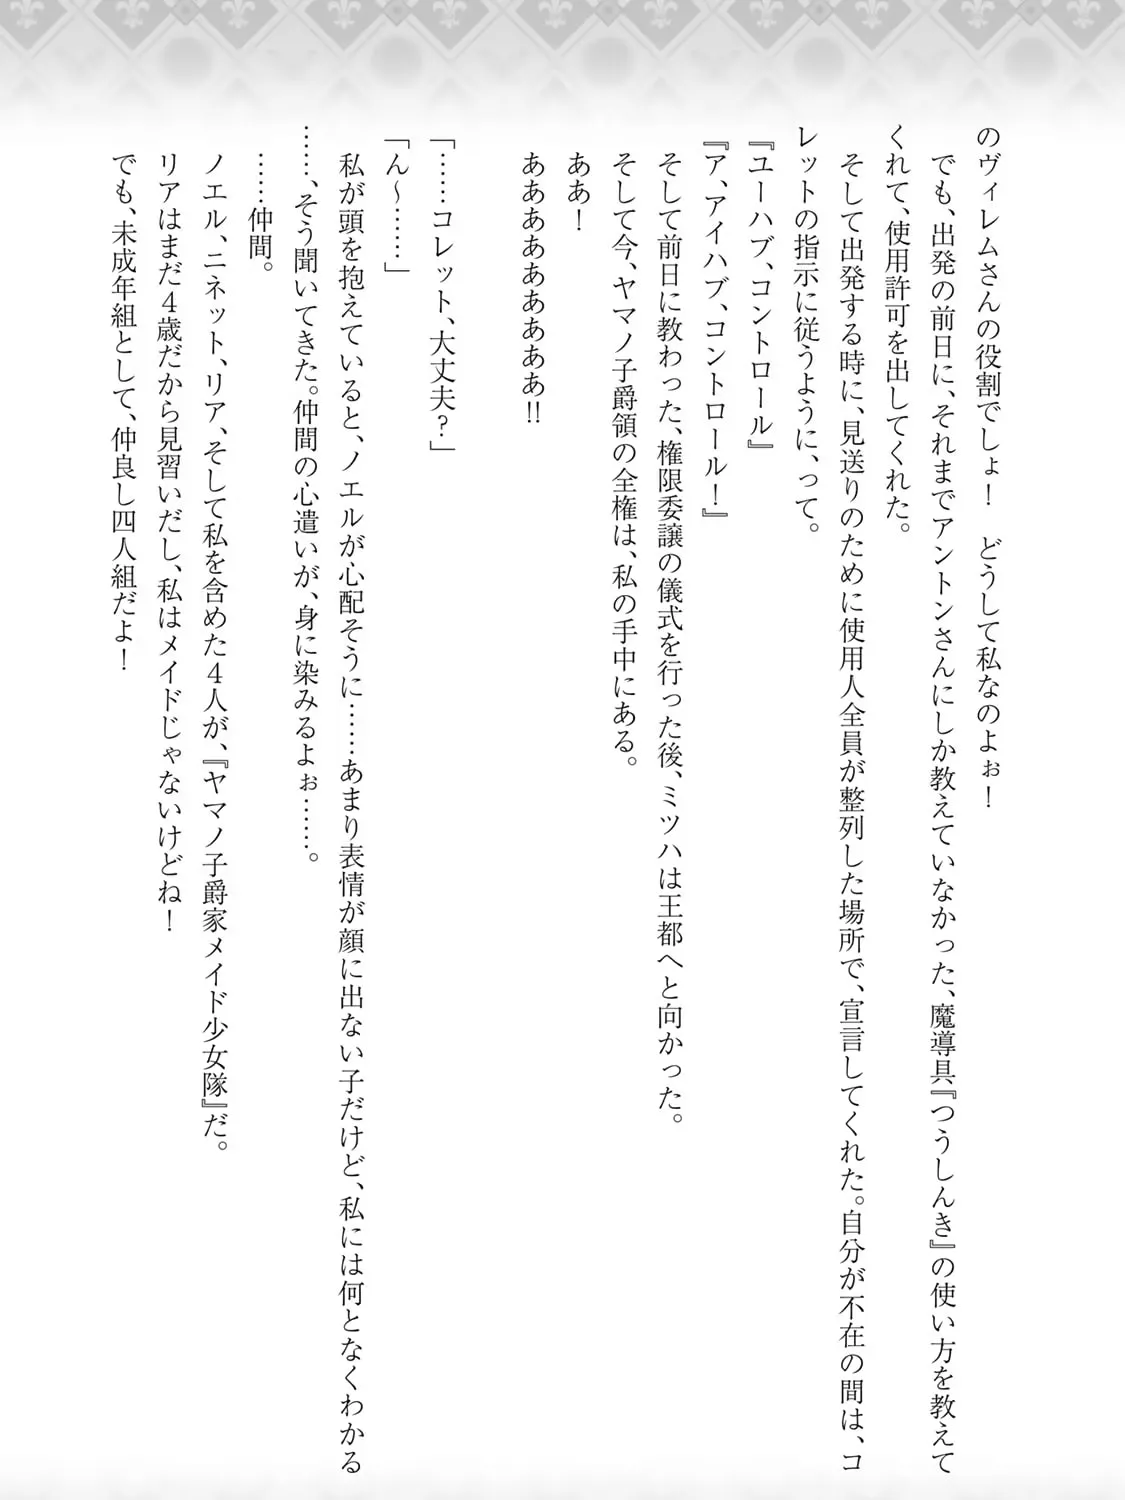 のヴィレムさんの役割でしょ！　どうして私なのよぉ！
でも、出発の前日に、それまでアントンさんにしか教えていなかった、魔導具『つうしんき』の使い方を教えて
くれて、使用許可を出してくれた。
そして出発する時に、見送りのために使用人全員が整列した場所で、宣言してくれた。自分が不在の間は、コ
レットの指示に従うように、って。
『ユーハブ、コントロール』
『ア、アイハブ、コントロール！』
そして前日に教わった、権限委譲の儀式を行った後、ミツハは王都へと向かった。
そして今、ヤマノ子爵領の全権は、私の手中にある。
ああ！
ああああああああああ!!
「……コレット、大丈夫？」
「ん～……」
私が頭を抱えていると、ノエルが心配そうに……あまり表情が顔に出ない子だけど、私には何となくわかる
……、そう聞いてきた。仲間の心遣いが、身に染みるよぉ……。
……仲間。
ノエル、ニネット、リア、そして私を含めた４人が、『ヤマノ子爵家メイド少女隊』だ。
リアはまだ４歳だから見習いだし、私はメイドじゃないけどね！
でも、未成年組として、仲良し四人組だよ！